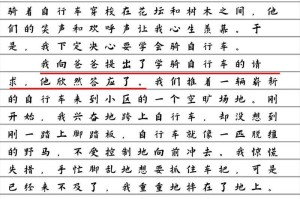 骑着自行车穿梭在花坛和树木之间，他
们的笑声和欢呼声让我心生羡慕。于
是，我下定决心要学会骑自行车。
我向爸爸提出了学骑自行车的请
求，他欣然答应了。我们推着一辆崭新
的自行车来到小区的一个空旷场地。刚
开始，我兴奋地跨上自行车，却没想到
刚一踏上脚踏板，自行车就像一匹脱缰
的野马，不受控制地向前冲去。我惊慌
失措，手忙脚乱地想要抓住车把，可是
已经来不及了，我重重地摔在了地上。